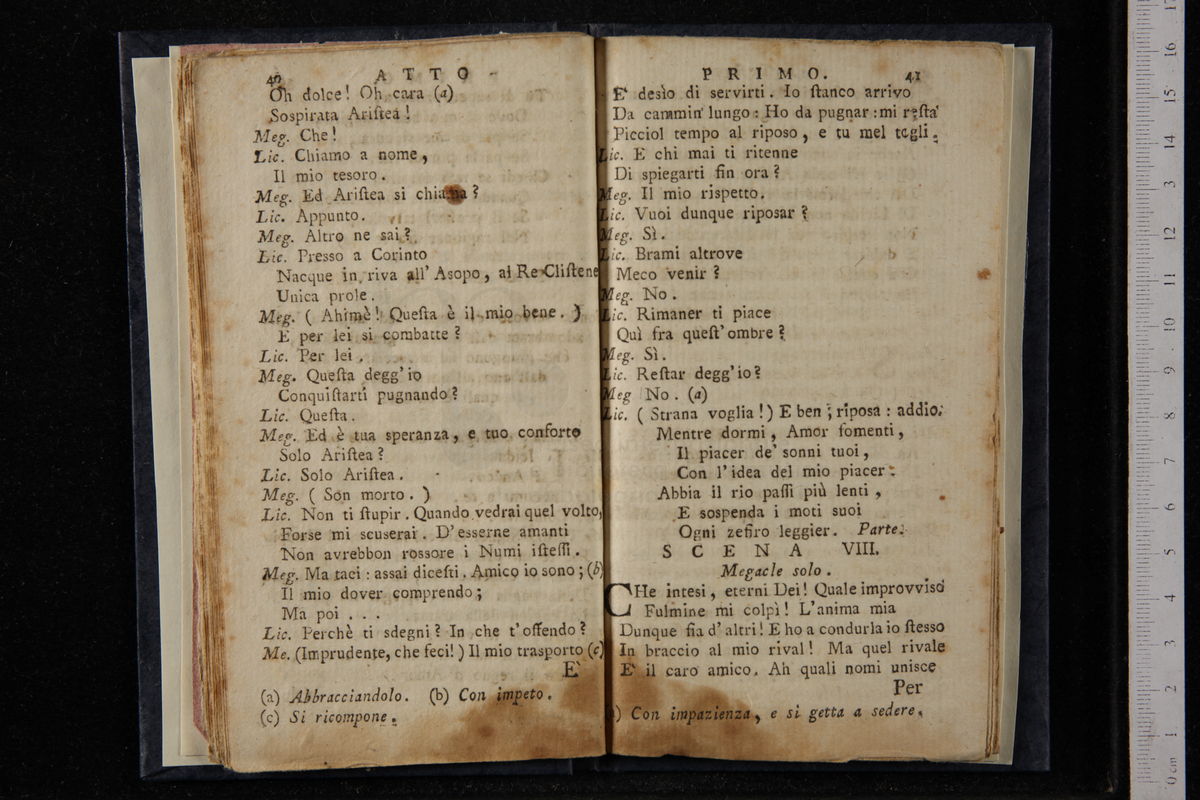 40 ATTO
Oh dolce! Oh cara (a)
Sospirata Ariſtea!
Meg. Che!
Lic. Chiamo a nome,
Il mio tesoro.
Meg. Ed Ariſtea si chiama?
Lic. Appunto.
Meg. Altro ne sai?
Lic. Presso a Corinto
Nacque in riva all' Asopo, al Re Cliſtene
Unica prole.
Meg. ( Ahimè! Queſta è il mio bene. )
E per lei si combatte?
Lic. Per lei.
Meg. Queſta degg'io
Conquiſtarti pugnando?
Lic. Queſta.
Meg. Ed è tua speranza, e tuo conforto
Solo Ariſtea?
Lic. Solo Ariſtea.
Meg. ( Son morto. )
Lic. Non ti ſtupir. Quando vedrai quel volto,
Forse mi scuserai. D'esserne amanti
Non avrebbon rossore i Numi iſteſſi.
Meg. Ma taci: assai diceſti. Amico io sono; (b)
Il mio dover comprendo;
Ma poi . . .
Lic. Perchè ti sdegni? In che t'offendo?
Me. (Imprudente, che feci!) Il mio trasporto (c)
E'
(a) Abbracciandolo. (b) Con impeto.
(c) Si ricompone.
PRIMO. 41
E' desìo di servirti. Io ſtanco arrivo
Da cammin lungo: Ho da pugnar: mi reſta
Picciol tempo al riposo, e tu mel togli.
Lic. E chi mai ti ritenne
Di spiegarti fin ora?
Meg. Il mio rispetto.
Lic. Vuoi dunque riposar?
Meg. Sì.
Lic. Brami altrove
Meco venir?
Meg. No.
Lic. Rimaner ti piace
Quì fra queſt'ombre?
Meg. Sì.
Lic. Reſtar degg'io?
Meg No. (a)
Lic. ( Strana voglia!) E ben; riposa: addio.
Mentre dormi, Amor fomenti,
Il piacer de' sonni tuoi,
Con l'idea del mio piacer:
Abbia il rio paſſi più lenti,
E sospenda i moti suoi
Ogni zefiro leggier. Parte.
SCENA VIII.
Megacle solo.
CHe intesi, eterni Dei! Quale improvviso
Fulmine mi colpì! L'anima mia
Dunque fia d'altri! E ho a condurla io ſtesso
In braccio al mio rival! Ma quel rivale
E' il caro amico. Ah quali nomi unisce
Per
) Con impazienza, e si getta a sedere.